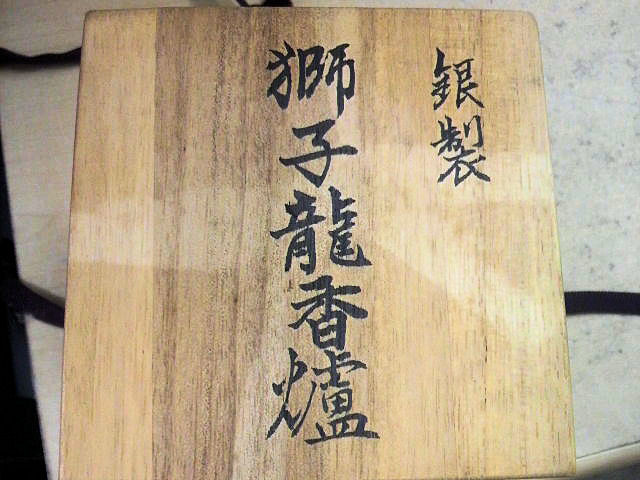 銀製
獅子龍香爐